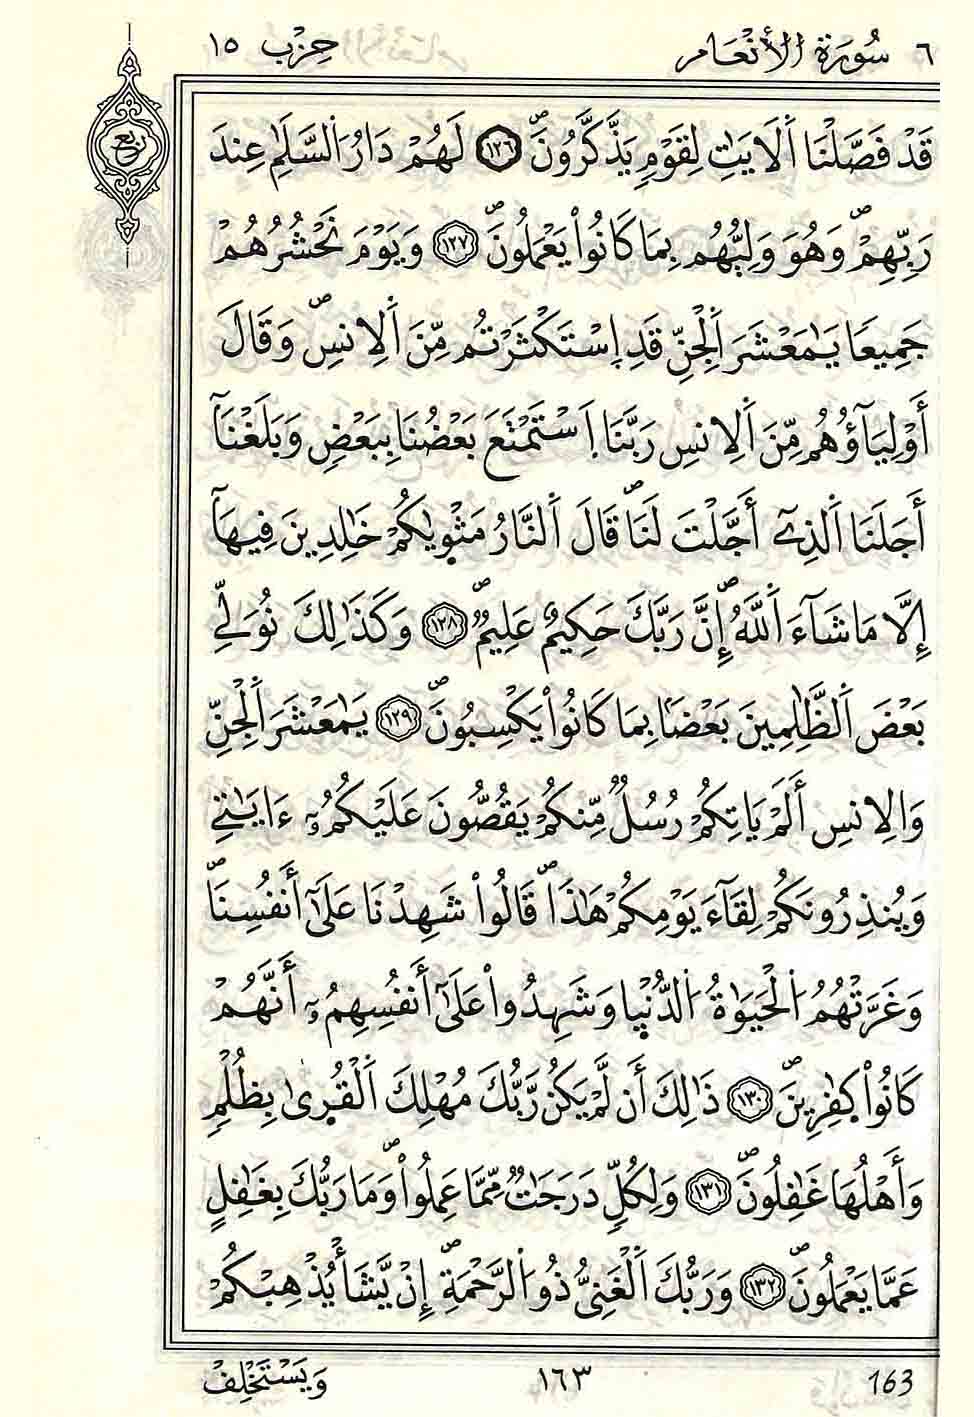 ٦ سُورَةُ الأَنْعَامِ حِزْب ١٥
رُبُع
قَدْ فَصَّلْنَا اَ۬لَايَٰتِ لِقَوْمٖ يَذَّكَّرُونَۖ ١٢٦ لَهُمْ دَارُ اُ۬لسَّلَٰمِ عِندَ
رَبِّهِمْۖ وَهُوَ وَلِيُّهُم بِمَا كَانُواْ يَعْمَلُونَۖ ١٢٧ وَيَوْمَ نَحْشُرُهُمْ
جَمِيعاٗ يَٰمَعْشَرَ اَ۬لْجِنِّ قَدِ اِ۪سْتَكْثَرْتُم مِّنَ اَ۬لِانسِۖ وَقَالَ
أَوْلِيَآؤُهُم مِّنَ اَ۬لِانسِ رَبَّنَا اَ۪سْتَمْتَعَ بَعْضُنَا بِبَعْضٖ وَبَلَغْنَآ
أَجَلَنَا اَ۬لذِےٓ أَجَّلْتَ لَنَاۖ قَالَ اَ۬لنَّارُ مَثْو۪يٰكُمْ خَٰلِدِينَ فِيهَآ
إِلَّا مَا شَآءَ اَ۬للَّهُۖ إِنَّ رَبَّكَ حَكِيمٌ عَلِيمٞۖ ١٢٨ وَكَذَٰلِكَ نُوَلِّے
بَعْضَ اَ۬لظَّٰلِمِينَ بَعْضاَۢ بِمَا كَانُواْ يَكْسِبُونَۖ ١٢٩ يَٰمَعْشَرَ اَ۬لْجِنِّ
وَالِانسِ أَلَمْ يَاتِكُمْ رُسُلٞ مِّنكُمْ يَقُصُّونَ عَلَيْكُمُۥٓ ءَايَٰتِے
وَيُنذِرُونَكُمْ لِقَآءَ يَوْمِكُمْ هَٰذَاۖ قَالُواْ شَهِدْنَا عَلَىٰٓ أَنفُسِنَاۖ
وَغَرَّتْهُمُ اُ۬لْحَيَوٰةُ اُ۬لدُّنْي۪ا وَشَهِدُواْ عَلَىٰٓ أَنفُسِهِمُۥٓ أَنَّهُمْ
كَانُواْ كٰ۪فِرِينَۖ ١٣٠ ذَٰلِكَ أَن لَّمْ يَكُن رَّبُّكَ مُهْلِكَ اَ۬لْقُر۪ىٰ بِظُلْمٖ
وَأَهْلُهَا غَٰفِلُونَۖ ١٣١ وَلِكُلّٖ دَرَجَٰتٞ مِّمَّا عَمِلُواْۖ وَمَا رَبُّكَ بِغَٰفِلٍ
عَمَّا يَعْمَلُونَۖ ١٣٢ وَرَبُّكَ اَ۬لْغَنِيُّ ذُو اُ۬لرَّحْمَةِۖ إِنْ يَّشَأْ يُذْهِبْكُمْ
وَيَسْتَخْلِفْ ١٦٣ 163